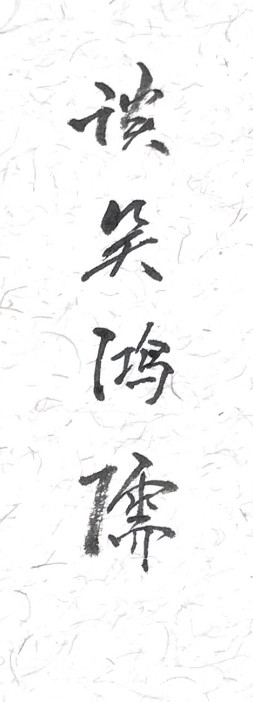 谈笑鸿儒